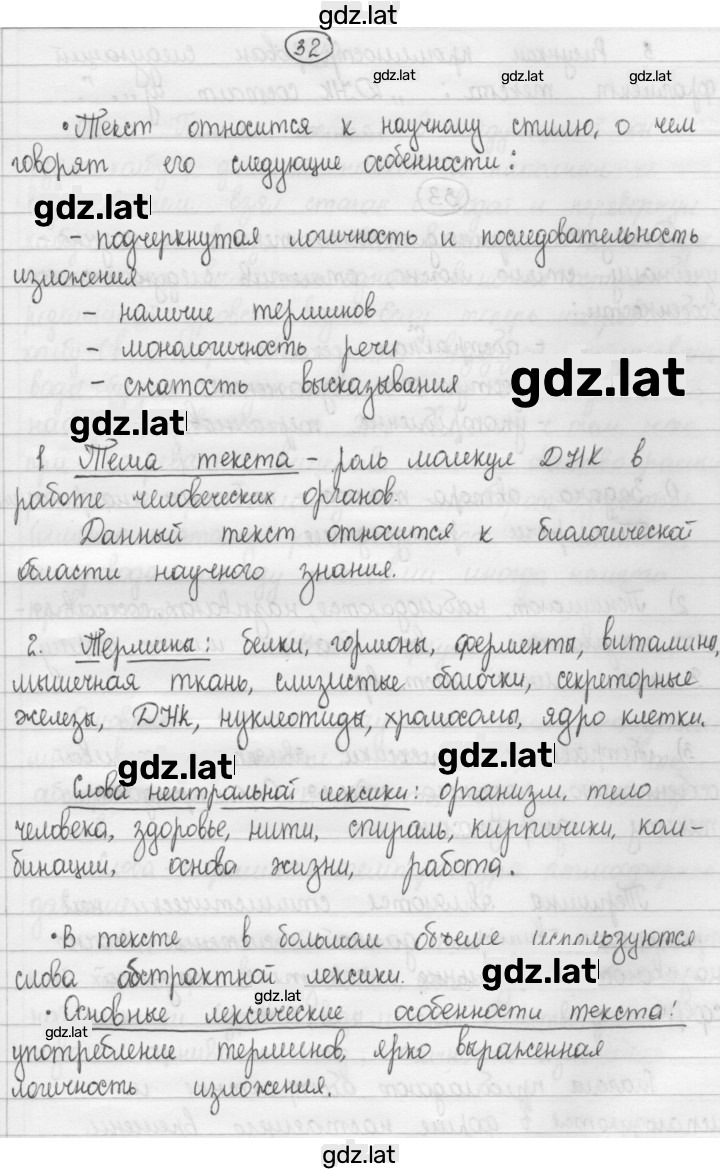 gdz.lat
32
gdz.lat gdz.lat gdz.lat
• Текст относится к научному стилю, о чем
говорят его следующие особенности:
gdz.lat
- подчеркнутая логичность и последовательность
изложения
- наличие терминов
- монологичность речи
- сжатость высказывания
gdz.lat
gdz.lat
1 Тема текста - роль молекул ДНК в
работе человеческих органов.
Данный текст относится к биологической
области научного знания.
2. Термины: белки, гормоны, ферменты, витамины,
мышечная ткань, слизистые оболочки, секреторные
железы, ДНК, нуклеотиды, хромосомы, ядро клетки.
gdz.lat gdz.lat
Слова нейтральной лексики: организм, тело
человека, здоровье, нити, спираль, кирпичики, ком-
бинации, основа жизни, работа.
• В тексте в большом объеме используются
слова абстрактной лексики.
gdz.lat
gdz.lat
• Основные лексические особенности текста:
gdz.lat
употребление терминов, ярко выраженная
логичность изложения.
gdz.lat